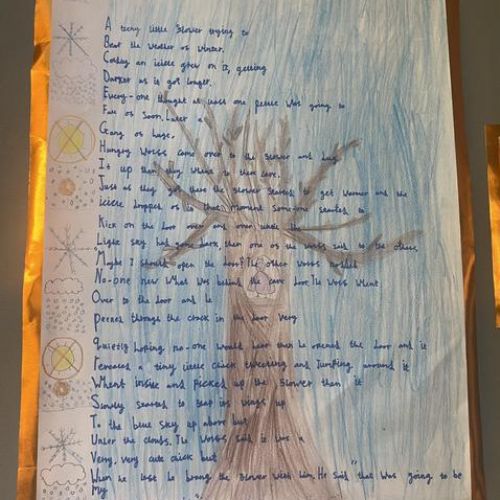 A teeny little flower trying to
Beat the weather of winter.
Coldly an icicle grew on it, getting
Darker as it got longer.
Every-one thought at least one petele was going to
Fall of soon. Later a
Gang of huge,
Hungry wolfs came over to the flower and
It up than they where to there cave.
Just as they got there the flower started to get warmer and the
icicle dropped of in that moment someone started to
Kick on the door over and over while the
Light sky had gone dark, then one of the wolfs said to the others,
"Maybe I should open the door? The other wolfs nodded
No-one new what was behind the cave door. The wolf whent
Over to the door and he
Peered through the crack in the door very
Quietly hoping no-one would hear then he opened the door and it
revealed a tiny little chick tweeting and Jumping around it
Whent inside and picked up the flower than it
Slowly started to flap its wings up
To the blue sky up above but
Under the clouds. The wolfs said it was a
Very, very cute chick but
When he left he brang the flower with him. He said "that was going to be
My